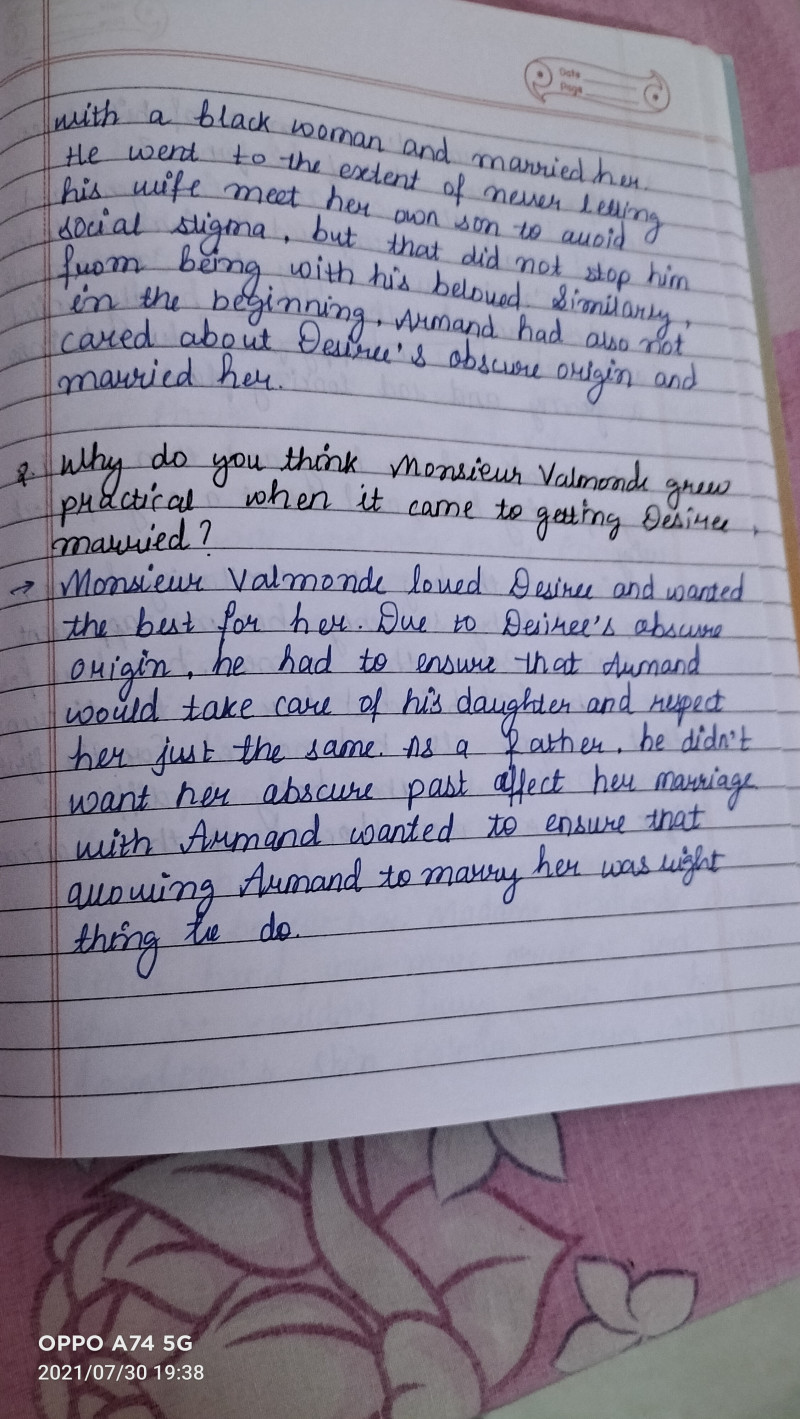 Date
Page
with a black woman and married her.
He went to the extent of never letting
his wife meet her own son to avoid
social stigma, but that did not stop him
from being with his beloved. Similarly,
in the beginning, Armand had also not
cared about Desiree's obscure origin and
married her.
Q. Why do you think Monsieur Valmonde grew
practical when it came to getting Desiree
married?
→ Monsieur Valmonde loved Desiree and wanted
the best for her. Due to Desiree's abscure
origin, he had to ensure that Armand
would take care of his daughter and respect
her just the same. As a father, he didn't
want her abscure past affect her marriage
with Armand wanted to ensure that
allowing Armand to marry her was right
thing to do.
OPPO A74 5G
2021/07/30 19:38